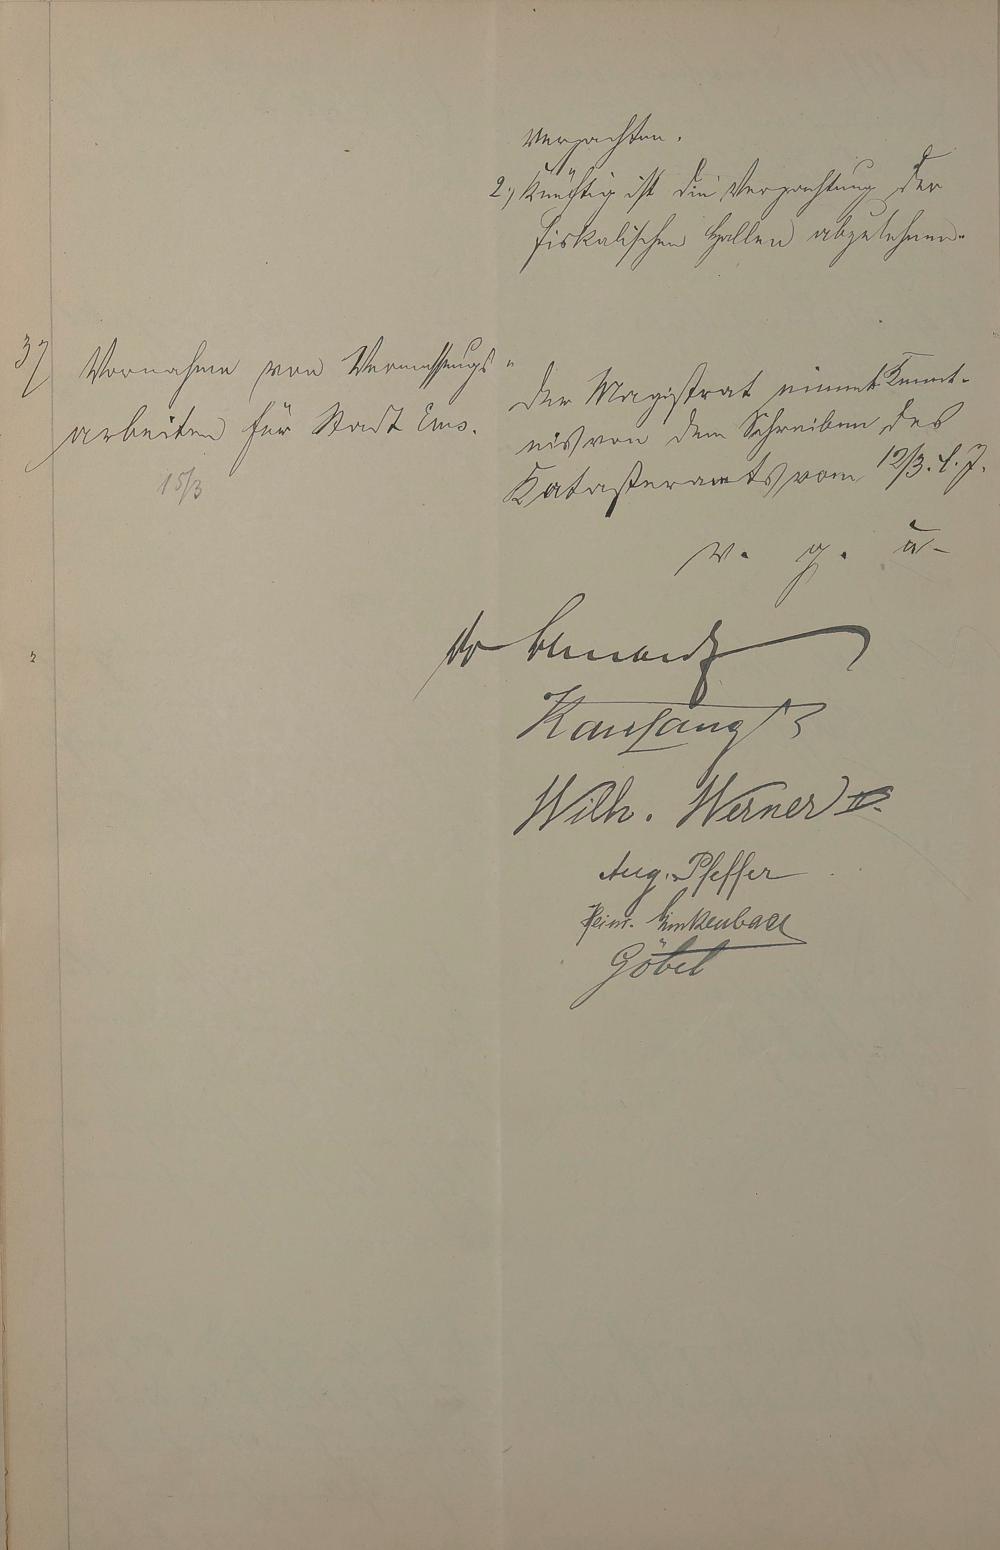 verpachten.
2.) Künftig ist die Verpachtung der
fiskalischen Hallen abzulehnen.
37
Vornahme von Vermessungs-
arbeiten für Stadt Ems.
15/3
Der Magistrat nimmt Kennt-
nis von dem Schreiben des
Katasteramts vom 12/3. l. J.
v. g. u.
Kauffang
Wilh. Werner
Aug. Pfeffer
Heinr. Linkenbach
Göbel